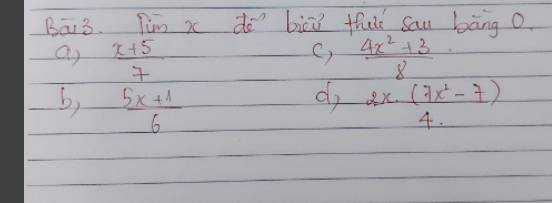 Bài 3. Tìm x để biểu thức sau bằng 0.
a, (x+5)/7 c, (4x² + 3)/8
b, (5x+1)/6 d, 2x.(7x² - 7)/4.